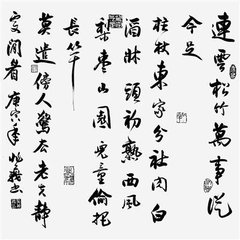 連雲松竹萬事從
今足
拄杖東家分社肉白
酒牀頭初熟西風
梨棗山園兒童偷把
長竿
莫遣傍人驚去老夫靜
處閑看庚寅年